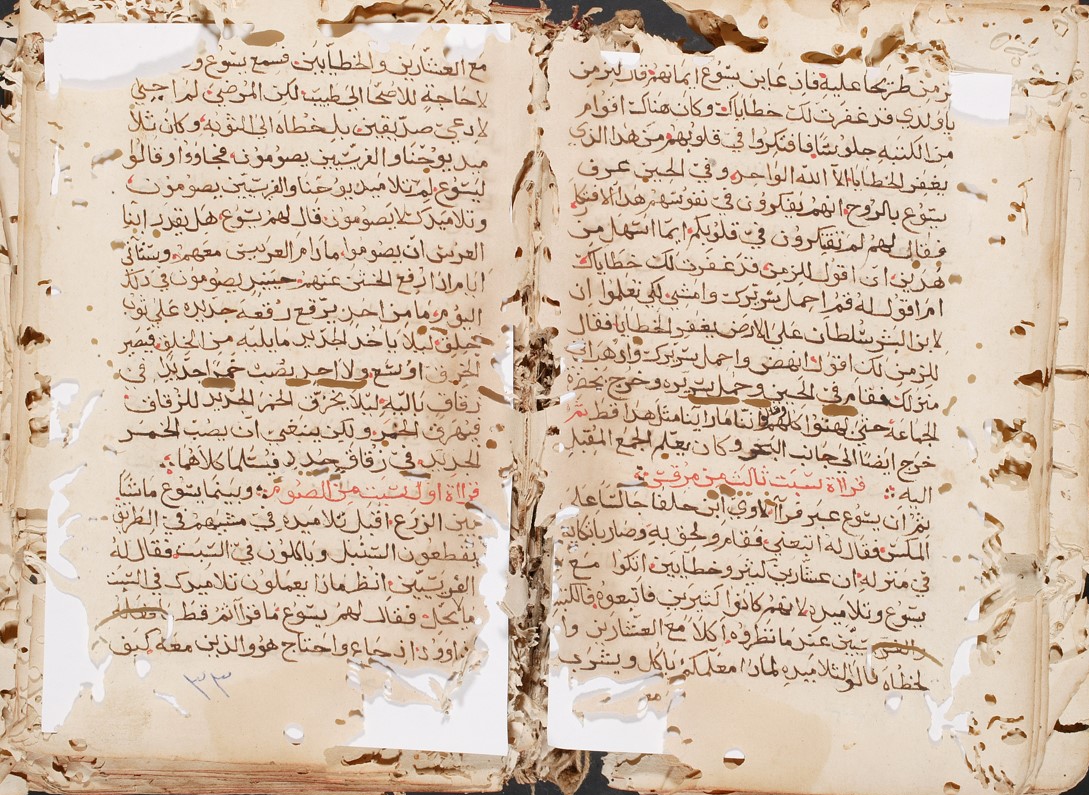 من طرحا عليه فاذ عاين يسوع ايمانهم قال للزمن
يا ولدي قد غفرت لك خطاياك وكان هناك اقوام
من الكتبه جلوسًا فافتكروا في قلوبهم من هذا الذي
يغفر الخطايا الا الله الواحد وفي الحين عرف
يسوع بالروح انهم يفكرون في نفوسهم هذا الافتكار
فقال لهم لم تفتكرون في قلوبكم ايما اسهل من
هذين ان اقول للزمن قد غفرت لك خطاياك
ام اقول له قم احمل سريرك وامشي لكي تعلموا ان
لابن البشر سلطان على الارض يغفر الخطايا فقال
للزمن لك اقول انهض واحمل سريرك واذهب الى
منزلك فقام في الحين وحمل سريره وخرج بحضرة
الجماعه حتى بهتوا كلهم وقالوا اننا ما راينا مثل هذا قط ثم
خرج ايضا الى جانب البحر وكان يعلم الجمع المقبل
اليه قراة سبت ثالثه من مرقس
ثم ان يسوع عبر فرا لاوي ابن حلفا جالسًا على
المكس فقال له اتبعني فقام ولحق به وصار باتكائه
في منزله ان عشارين كثير وخطايين اتكوا مع
يسوع وتلاميذه لانهم كانوا كثيرين فاتبعوه فالكتبه
والفريسيين عند ما نظروه اكلا مع العشارين وا
لخطاه قالوا لتلاميذه لماذا معلمكم ياكل ويشرب
مع العشارين والخطايين فسمع يسوع و
لا حاجة للاصحا الى طبيب لكن المرضى لم اجي
لادعي صديقين بل خطاه الى التوبه وكان تلا
ميذ يوحنا والفريسيين يصومون فجاووا وقالوا
ليسوع لم تلاميذ يوحنا والفريسيين يصومون
وتلاميذك لا يصومون قال لهم يسوع هل يقدر ابنا
العرس ان يصوموا مادام العريس معهم وستأتي
ايام اذا رفع الختن عنهم حينيذ يصومون في ذلك
اليوم ما من احد يرقع رقعه جديده على ثوب
خلق ليلا ياخذ الجديد ما يليه من الخلق فيصير
الخرق اوسع ولا احد يصب خمر جديدًا في
زقاق باليه ليلا يخرق الخمر الجديد للزقاق
فيهرق الخمر ولكن ينبغي ان يصب الخمر
الجديد في زقاق جديد فسلما كلاهما
قراة اول سبت من الصوم وبينما يسوع ماشيًا
بين الزرع اقبل تلاميذه في مشيهم في الطريق
يقطعون السنبل وياكلون في السبت فقال له
الفريسيين انظر ماذا يعملون تلاميذك في السبت
ما لا يحل فقال لهم يسوع ما قراتم قط فعله
داوود اذ جاع واحتاج هو والذين معه كيف
٣٣